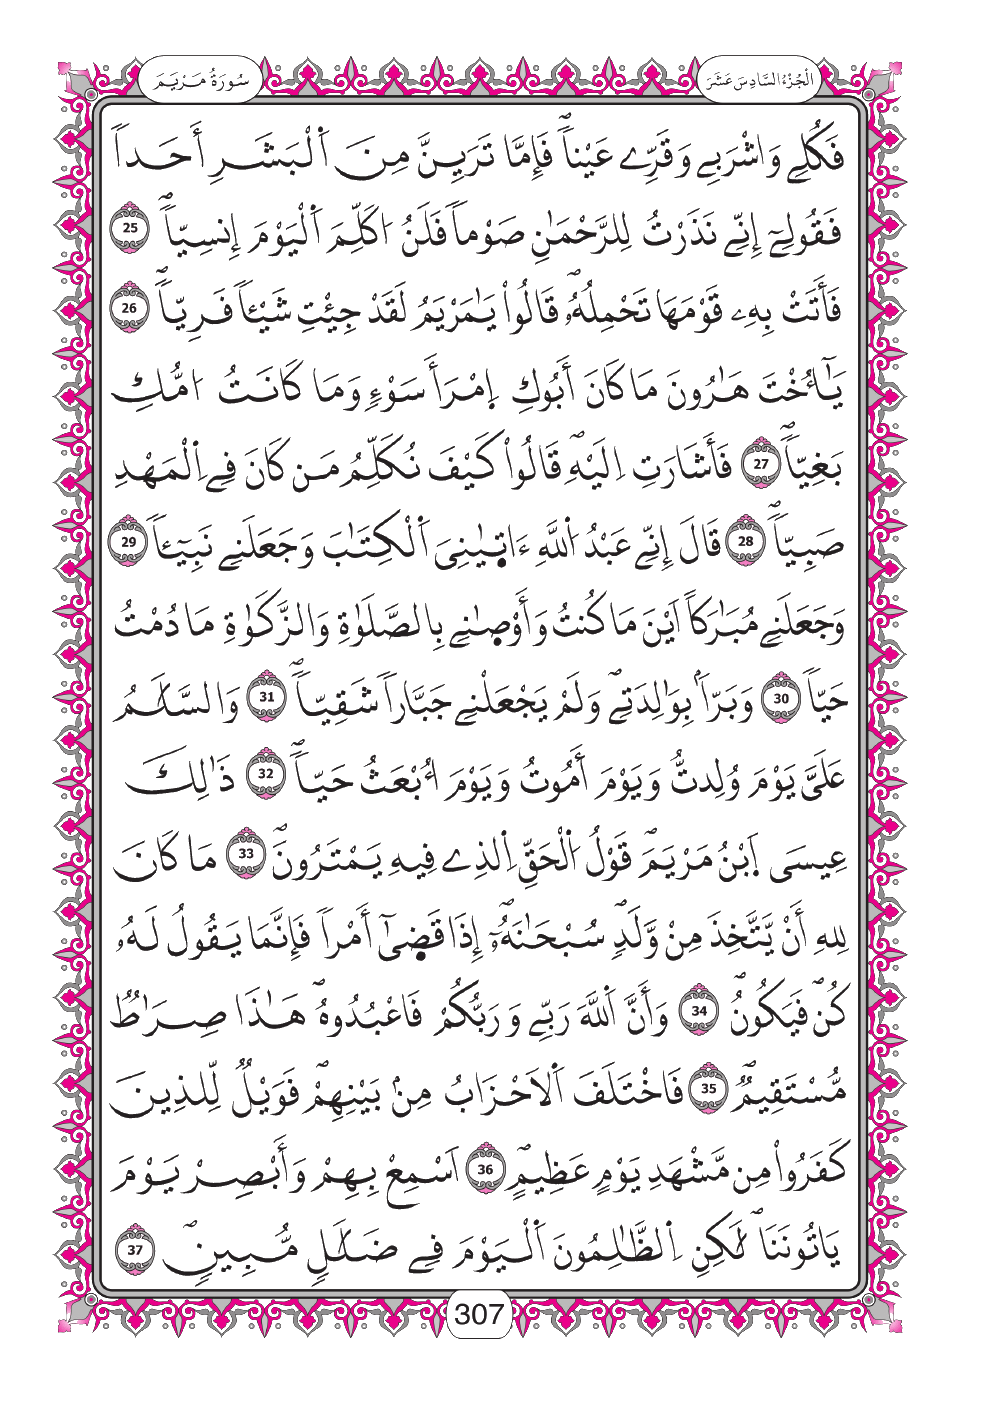 الْجُزْءُ السَّادِسَ عَشَرَ
سُورَةُ مَرْيَمَ
فَكُلِے وَاشْرَبِے وَقَرِّے عَيْناٗۖ فَإِمَّا تَرَيِنَّ مِنَ اَ۬لْبَشَرِ أَحَداٗ
فَقُولِےٓ إِنِّے نَذَرْتُ لِلرَّحْمَٰنِ صَوْماٗ فَلَنُ اكَلِّمَ اَ۬لْيَوْمَ إِنسِيّاٗۖ 25
فَأَتَتْ بِهِۦ قَوْمَهَا تَحْمِلُهُۥۖ قَالُواْ يَٰمَرْيَمُ لَقَدْ جِئْتِ شَيْـٔاٗ فَرِيّاٗۖ 26
يَٰٓأُخْتَ هَٰرُونَ مَا كَانَ أَبُوكِ اِ۪مْرَأَ سَوْءٖ وَمَا كَانَتُ امُّكِ
بَغِيّاٗۖ 27 فَأَشَارَتِ اِلَيْهِۖ قَالُواْ كَيْفَ نُكَلِّمُ مَن كَانَ فِے اِ۬لْمَهْدِ
صَبِيّاٗۖ 28 قَالَ إِنِّے عَبْدُ اُ۬للَّهِ ءَاتٜيٰنِيَ اَ۬لْكِتَٰبَ وَجَعَلَنِے نَبِيٓـٔاٗ 29
وَجَعَلَنِے مُبَٰرَكاً اَيْنَ مَا كُنتُ وَأَوْصٜىٰنِے بِالصَّلَوٰةِ وَالزَّكَوٰةِ مَا دُمْتُ
حَيّاٗ 30 وَبَرّاَۢ بِوَٰلِدَتِےۖ وَلَمْ يَجْعَلْنِے جَبَّاراٗ شَقِيّاٗۖ 31 وَالسَّلَٰمُ
عَلَيَّ يَوْمَ وُلِدتُّ وَيَوْمَ أَمُوتُ وَيَوْمَ أُبْعَثُ حَيّاٗۖ 32 ذَٰلِكَ
عِيسَى اَ۪بْنُ مَرْيَمَۖ قَوْلُ اُ۬لْحَقِّ اِ۬لذِے فِيهِ يَمْتَرُونَۖ 33 مَا كَانَ
لِلهِ أَنْ يَّتَّخِذَ مِنْ وَّلَدٖۖ سُبْحَٰنَهُۥٓۖ إِذَا قَضٜىٰٓ أَمْراٗ فَإِنَّمَا يَقُولُ لَهُۥ
كُنۖ فَيَكُونُۖ 34 وَأَنَّ اَ۬للَّهَ رَبِّے وَرَبُّكُمْ فَاعْبُدُوهُۖ هَٰذَا صِرَٰطٞ
مُّسْتَقِيمٞۖ 35 فَاخْتَلَفَ اَ۬لْاَحْزَابُ مِنۢ بَيْنِهِمْۖ فَوَيْلٞ لِّلذِينَ
كَفَرُواْ مِن مَّشْهَدِ يَوْمٍ عَظِيمٍۖ 36 اَسْمِعْ بِهِمْ وَأَبْصِرْ يَوْمَ
يَاتُونَنَاۖ لَٰكِنِ اِ۬لظَّٰلِمُونَ اَ۬لْيَوْمَ فِے ضَلَٰلٖ مُّبِينٖۖ 37
307